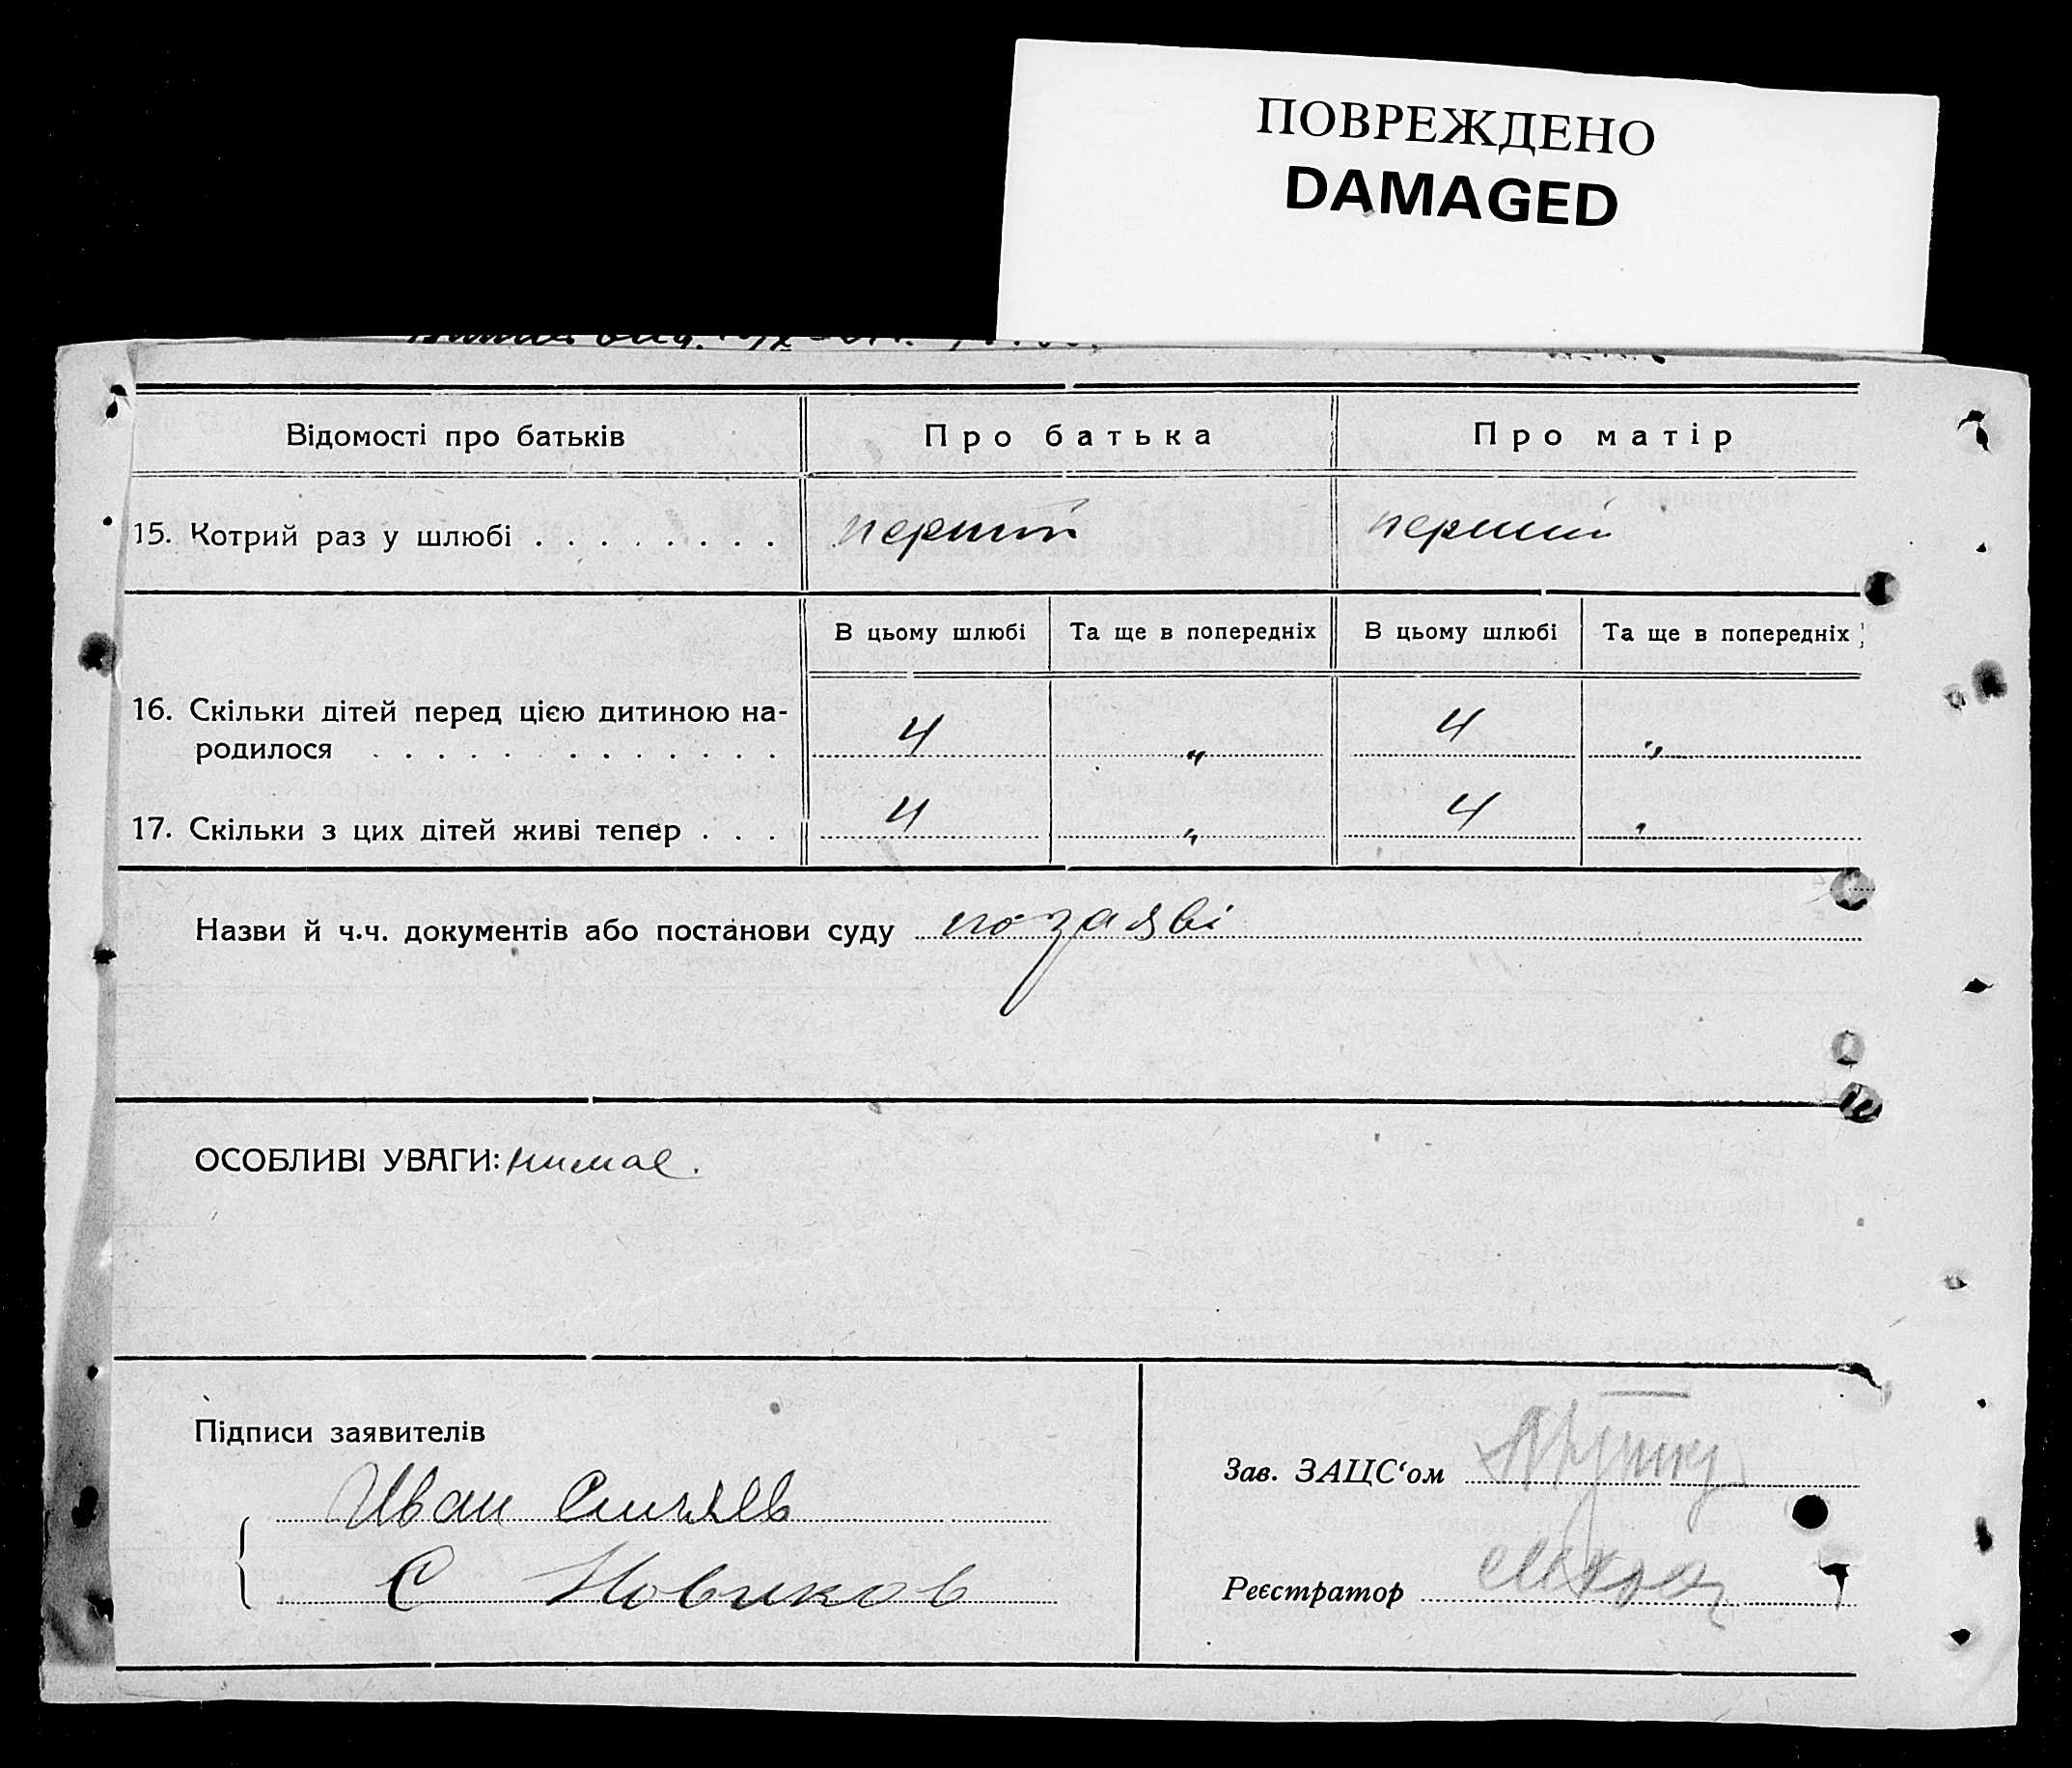 ПОВРЕЖДЕНО
DAMAGED
Відомості про батьків
Про батька
Про матір
15. Котрий раз у шлюбі . . . . . . . .
перший
перший
В цьому шлюбі
Та ще в попередніх
В цьому шлюбі
Та ще в попередніх
16. Скільки дітей перед цією дитиною на-
родилося . . . . . . . . . . . . .
4
„
4
„
17. Скільки з цих дітей живі тепер . . .
4
„
4
„
Назви й ч.ч. документів або постанови суду по заяві
ОСОБЛИВІ УВАГИ: нимае.
Підписи заявителів
Иван
С Новиков
Зав. ЗАЦС‘ом
Реєстратор